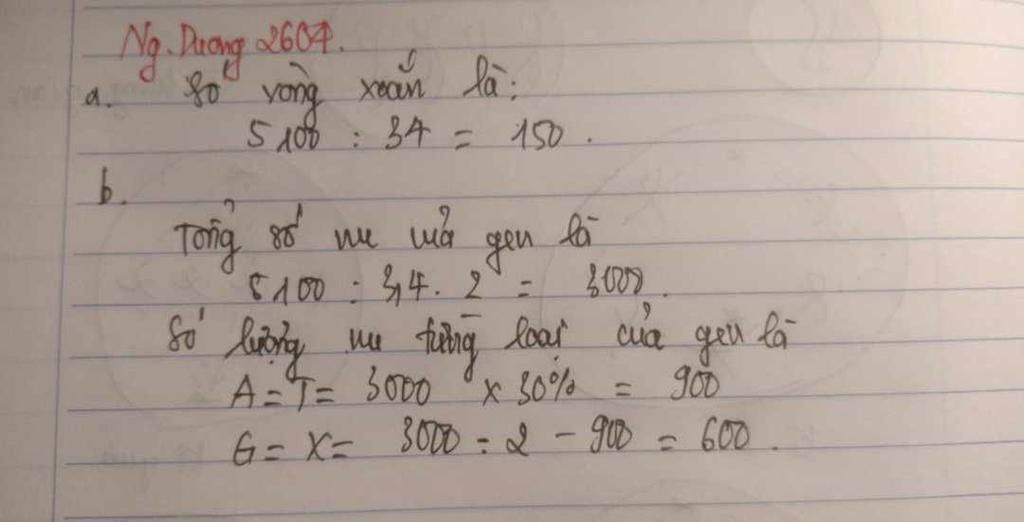 Ng. Dương 2604.
a. Số vòng xoắn là:
5100 : 34 = 150.
b.
Tổng số nu của gen là
5100 : 3,4 . 2 = 3000.
Số lượng nu từng loại của gen là
A = T = 3000 x 30% = 900
G = X = 3000 : 2 - 900 = 600.